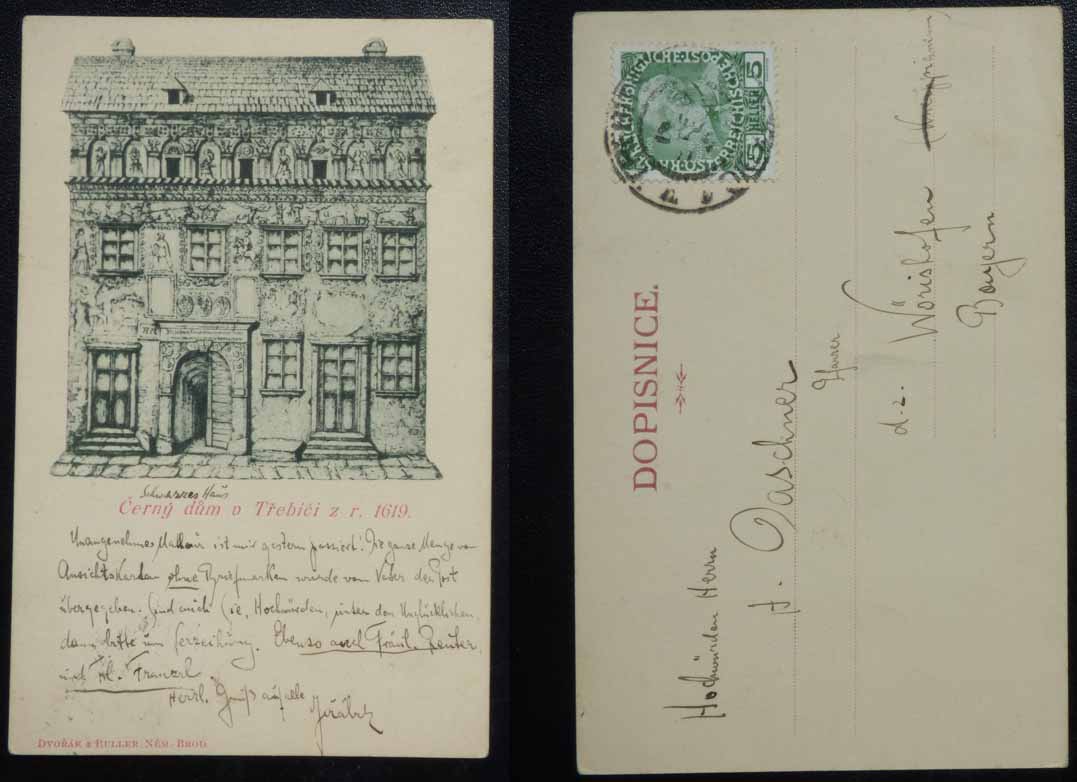 Schwarzes Haus
Černý dům v Třebíči z r. 1619.
Unangenehmes Malheur ist mir gestern passiert! Die ganze Menge von
Ansichtskarten ohne Briefmarken wurde vom Vater der Post
übergegeben. Sind auch Sie, Hochwürden, unter den Unglücklichen,
dann bitte um Verzeihung. Ebenso auch Fräul. Reuter,
und Frl. Franzl.
Herzl. Gruß auf alle
DVOŘÁK & BULLER, NĚM.-BROD
KAISERKÖNIGLICHE·POST
K·K·ÖSTERREICHISCHE
5 HELLER 5
DOPISNICE.
Hochwürden Herrn
H. Daschner
d. z. Wörishofen
Bayern